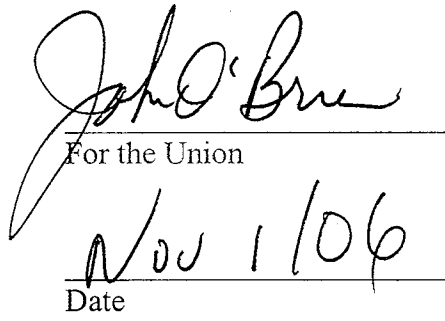 John O'Brien
For the Union
Nov 1/06
Date